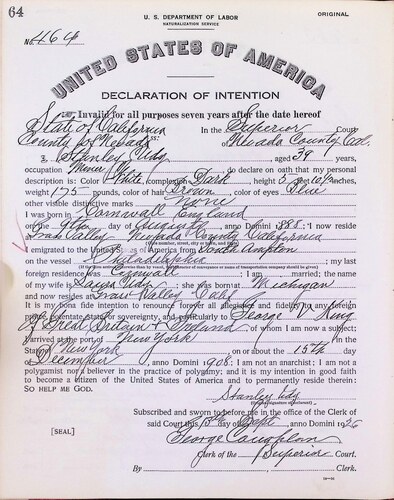 64
U. S. DEPARTMENT OF LABOR
NATURALIZATION SERVICE
ORIGINAL
No. 464
UNITED STATES OF AMERICA
DECLARATION OF INTENTION
Invalid for all purposes seven years after the date hereof
State of California
In the Superior Court
County of Nevada ss:
of Nevada County Cal.
I, Stanley Udy, aged 39 years,
occupation, do declare on oath that my personal
description is: Color White, complexion Dark, height 5 feet inches,
weight 175 pounds, color of hair Brown, color of eyes Blue
other visible distinctive marks None
I was born in Cornwall England
on the 9th day of August, anno Domini 1888; I now reside
at Grass Valley Nevada County California
(Give number, street, city or town, and State)
I emigrated to the United States of America from South Ampton
on the vessel Philadelphia; my last
(If the alien arrived otherwise than by vessel, the character of conveyance or name of transportation company should be given)
foreign residence was Cornwall; I am married; the name
of my wife is Laura Udy; she was born at Michigan
and now resides at Grass Valley Calif
It is my bona fide intention to renounce forever all allegiance and fidelity to any foreign
prince, potentate, state, or sovereignty, and particularly to George V King
of Great Britain & Ireland, of whom I am now a subject;
I arrived at the port of New York, in the
State of New York, on or about the 15th day
of December, anno Domini 1908; I am not an anarchist; I am not a
polygamist nor a believer in the practice of polygamy; and it is my intention in good faith
to become a citizen of the United States of America and to permanently reside therein:
SO HELP ME GOD.
Stanley Udy
(Original signature of declarant)
Subscribed and sworn to before me in the office of the Clerk of
said Court this day of Sept, anno Domini 1925
[SEAL]
George
Clerk of the Superior Court.
By, Clerk.